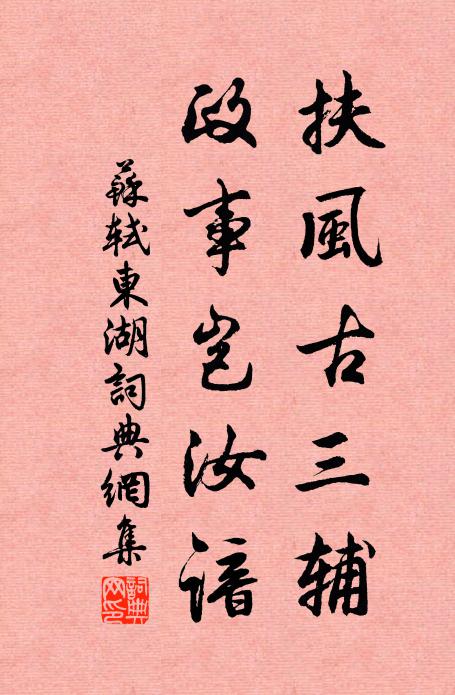 扶風古三辅
政事岂汝諳
蘇軾東湖詞典網集
詞典网印